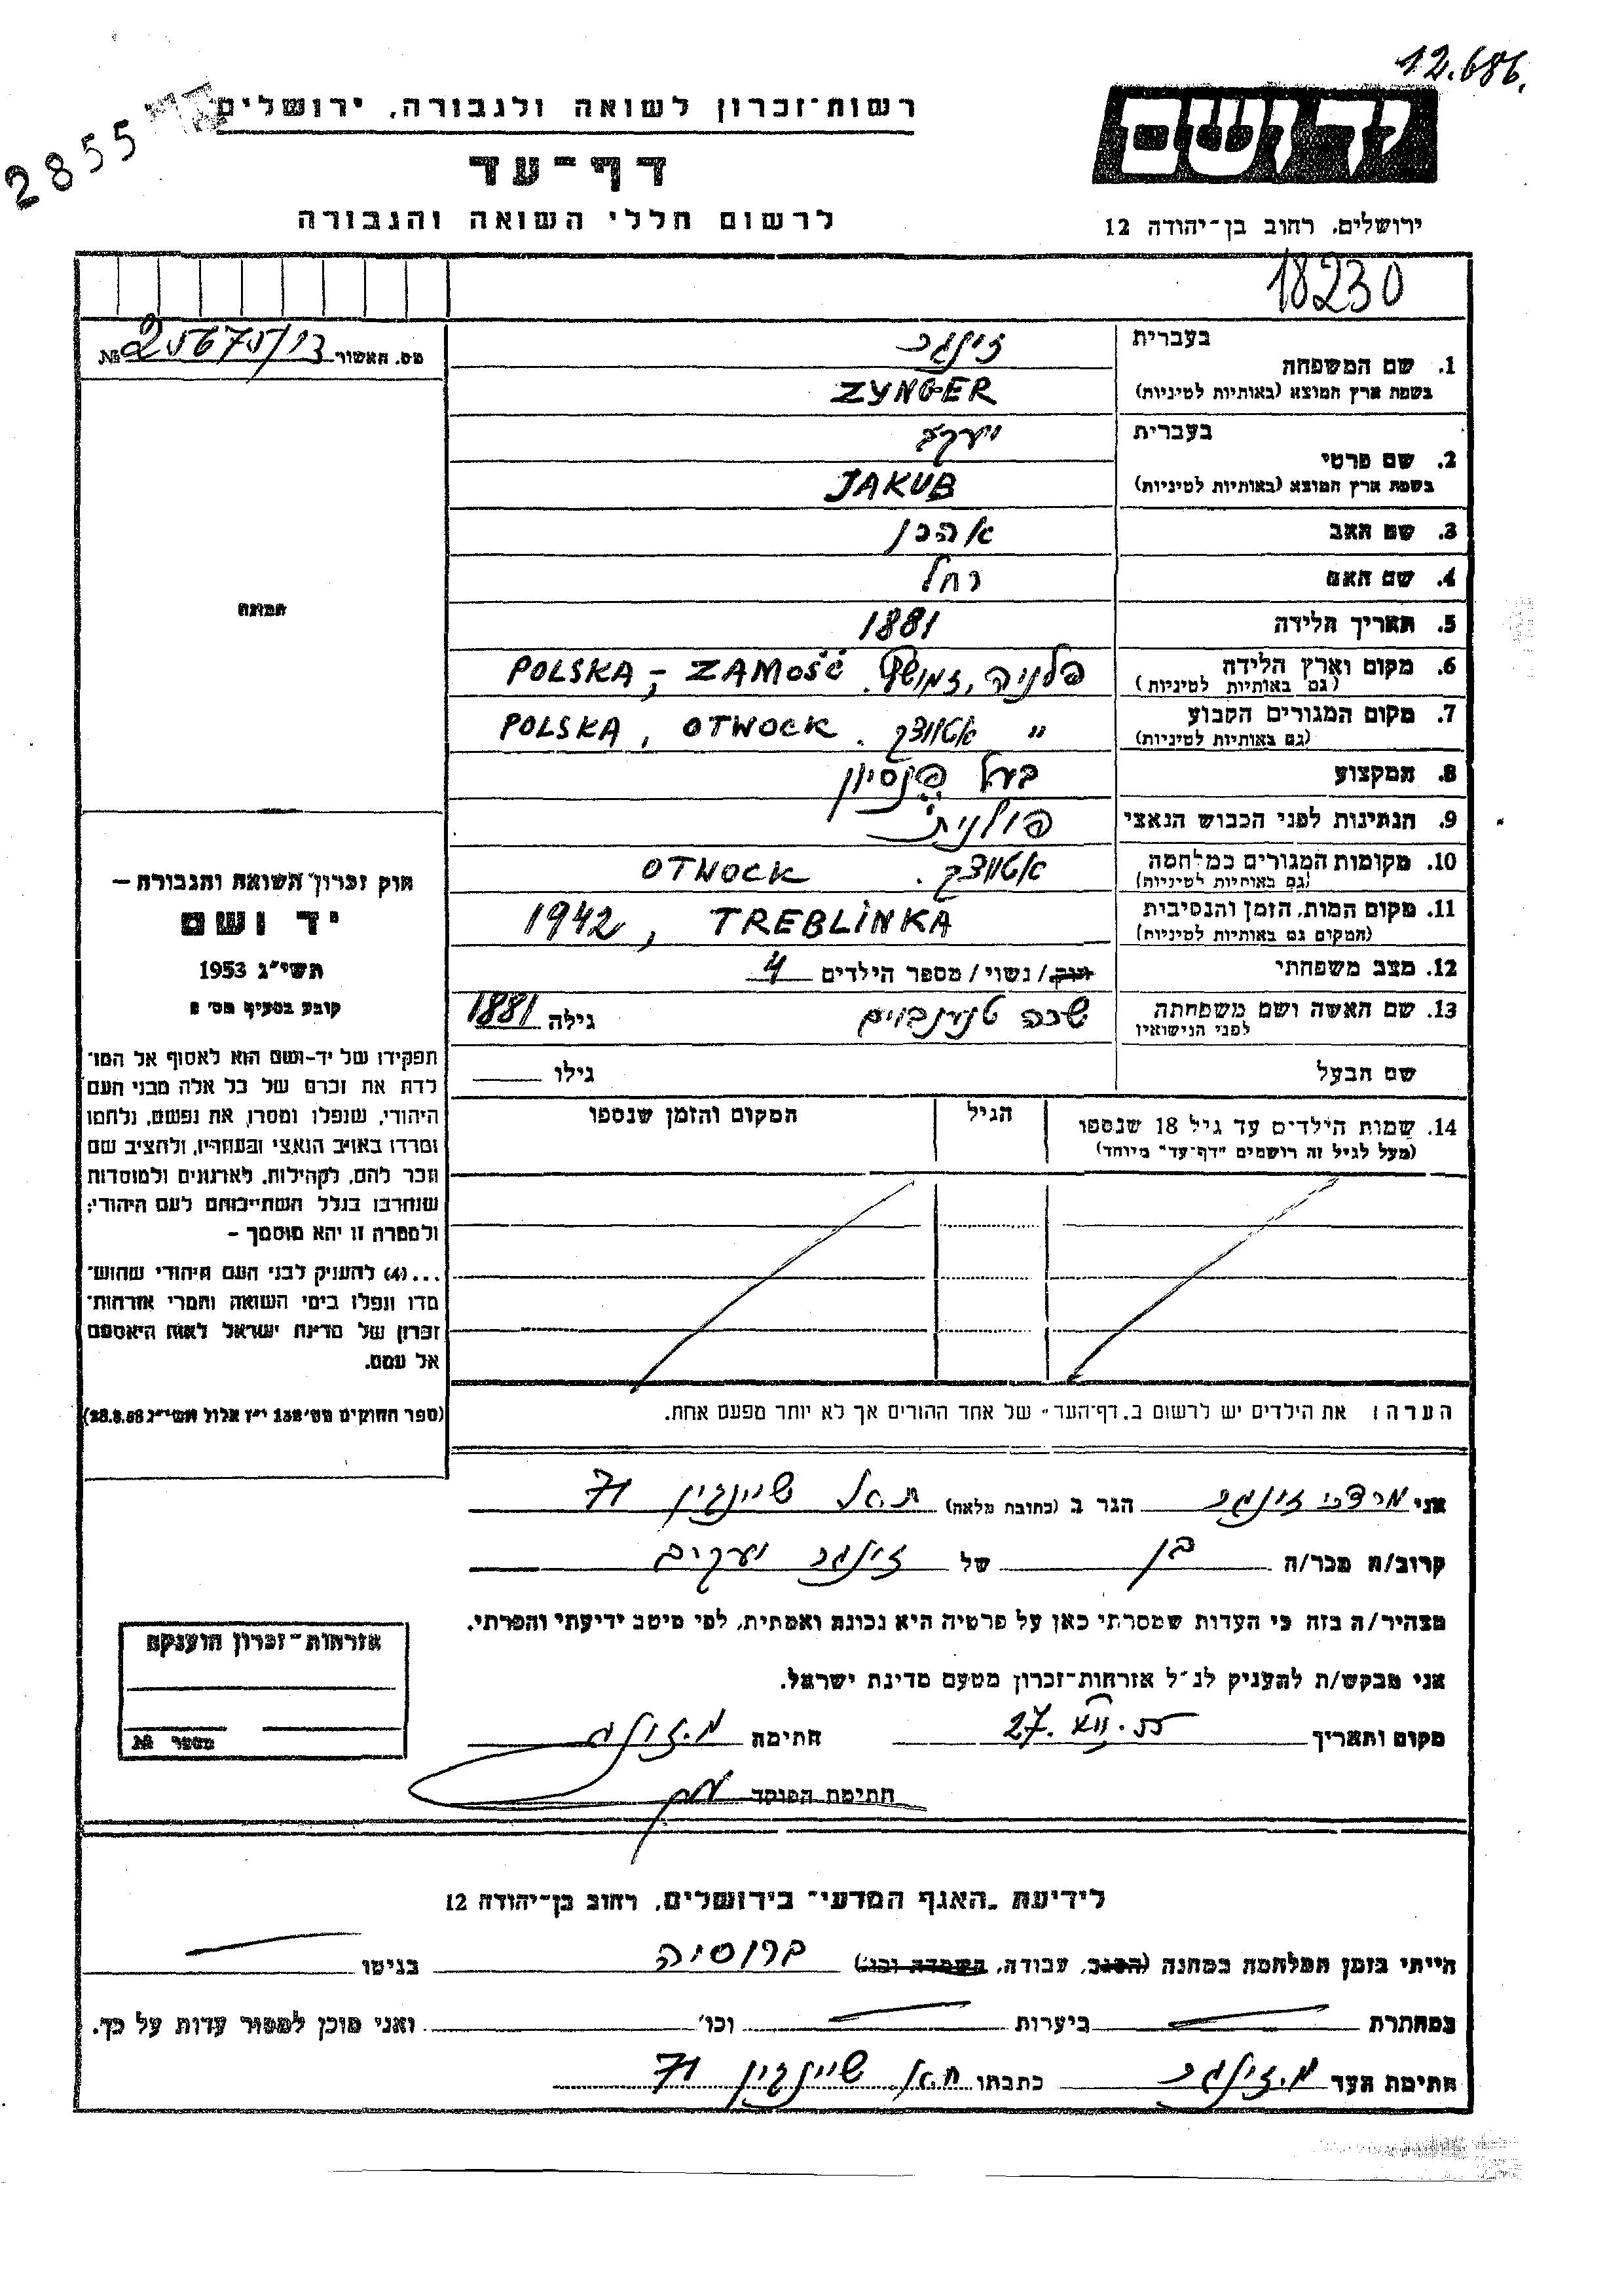 12.686.
2855
רשות־זכרון לשואה ולגבורה, ירושלים
יד ושם
דף־עד
לרשום חללי השואה והגבורה
ירושלים, רחוב בן־יהודה 12
18230
מס. האשור № 25675/13
בעברית זינגר
1. שם המשפחה
בשפת ארץ המוצא (באותיות לטיניות) ZYNGER
בעברית יעקב
2. שם פרטי
בשפת ארץ המוצא (באותיות לטיניות) JAKUB
3. שם האב אהרן
4. שם האם רחל
5. תאריך הלידה 1881
6. מקום וארץ הלידה פלניה, זמושץ. POLSKA, - ZAMOŚĆ
(גם באותיות לטיניות)
7. מקום המגורים הקבוע " אטווצק. POLSKA, OTWOCK
(גם באותיות לטיניות)
8. המקצוע בעל פנסיון
9. הנתינות לפני הכבוש הנאצי פולנית
10. מקומות המגורים במלחמה אטווצק. OTWOCK
(גם באותיות לטיניות)
11. מקום המות, הזמן והנסיבות 1942, TREBLINKA
(המקום גם באותיות לטיניות)
12. מצב משפחתי רווק/ נשוי/ מספר הילדים 4
13. שם האשה ושם משפחתה לפני הנישואין שרה טננבוים גילה 1881
שם הבעל גילו
14. שמות הילדים עד גיל 18 שנספו הגיל המקום והזמן שנספו
(מעל לגיל זה רושמים "דף־עד" מיוחד)
הערה: את הילדים יש לרשום ב„דף־העד" של אחד ההורים אך לא יותר מפעם אחת.
תמונה
חוק זכרון השואה והגבורה —
יד ושם
תשי"ג 1953
קובע בסעיף מס' 2
תפקידו של יד־ושם הוא לאסוף אל המו־
לדת את זכרם של כל אלה מבני העם
היהודי, שנפלו ומסרו את נפשם, נלחמו
ומרדו באויב הנאצי ובעוזריו, ולהציב שם
וזכר להם, לקהילות, לארגונים ולמוסדות
שנחרבו בגלל השתייכותם לעם היהודי;
ולמטרה זו יהא מוסמך —
...(4) להעניק לבני העם היהודי שהוש־
מדו ונפלו בימי השואה והמרי אזרחות־
זכרון של מדינת ישראל לאות היאספם
אל עמם.
(ספר החוקים מס' 132 י"ז אלול תשי"ג 28.8.53)
אני מרדכי זינגר הגר ב (כתובת מלאה) ת.א. שיינקין 71
קרוב/ה מכר/ה בן של זינגר יעקב
מצהיר/ה בזה כי העדות שמסרתי כאן על פרטיה היא נכונה ואמתית, לפי מיטב ידיעתי והכרתי.
אני מבקש/ת להעניק לנ"ל אזרחות־זכרון מטעם מדינת ישראל.
מקום ותאריך 27. VII. 55 חתימה מ. זינגר
חתימת הפוקד
אזרחות־זכרון הוענקה
מספר №
לידיעת „האגף המדעי" בירושלים, רחוב בן־יהודה 12
הייתי בזמן המלחמה במחנה (הסגר, עבודה, השמדה וכו') ברוסיה בגיטו
במחתרת ביערות וכו' ואני מוכן למסור עדות על כך.
חתימת העד מ. זינגר כתבתו ת.א. שיינקין 71